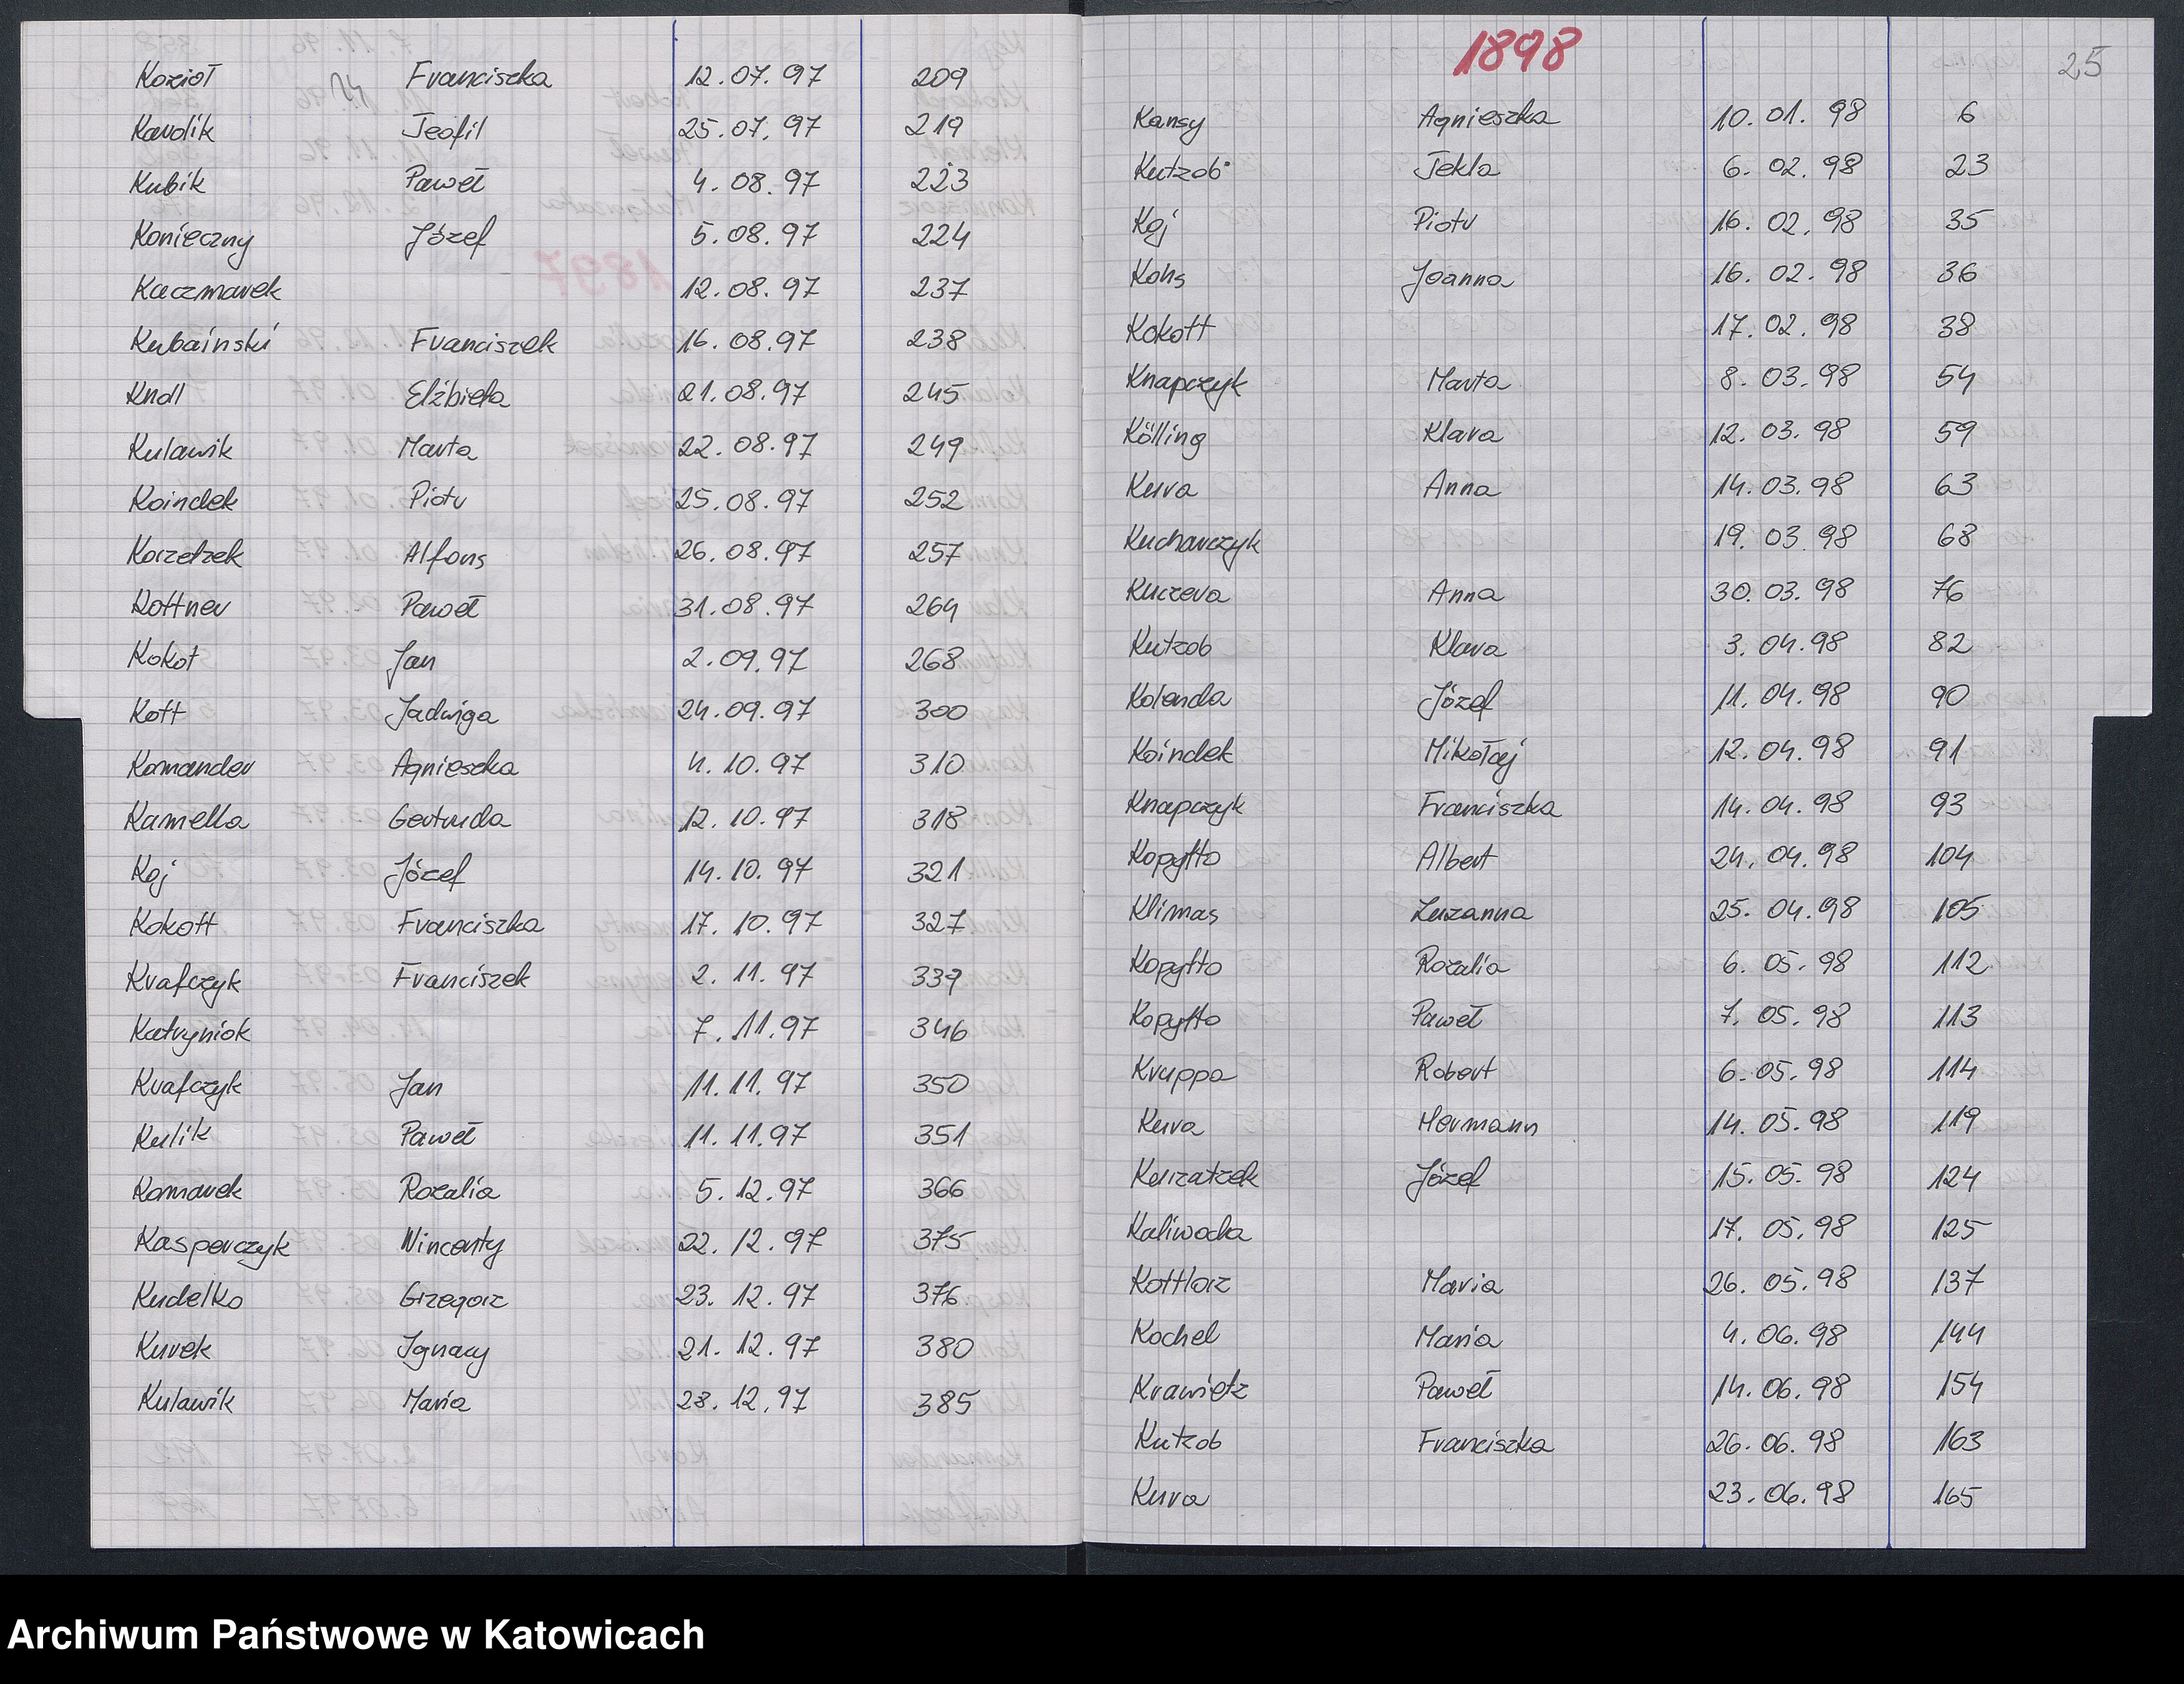 Kozioł Franciszka 12.07.97 209
24
Karolik Teofil 25.07.97 219
Kubik Paweł 4.08.97 223
Konieczny Józef 5.08.97 224
Kaczmarek 12.08.97 237
Kubaiński Franciszek 16.08.97 238
Kndl Elżbieta 21.08.97 245
Kulawik Marta 22.08.97 249
Koindek Piotr 25.08.97 252
Korzetzek Alfons 26.08.97 257
Kottner Paweł 31.08.97 264
Kokot Jan 2.09.97 268
Kott Jadwiga 24.09.97 300
Komander Agnieszka 4.10.97 310
Kamella Gertruda 12.10.97 318
Koj Józef 14.10.97 321
Kokott Franciszka 17.10.97 327
Krafczyk Franciszek 2.11.97 339
Katryniok 7.11.97 346
Krafczyk Jan 11.11.97 350
Kulik Paweł 11.11.97 351
Komarek Rozalia 5.12.97 366
Kasperczyk Wincenty 22.12.97 375
Kudelko Grzegorz 23.12.97 376
Kurek Ignacy 21.12.97 380
Kulawik Maria 28.12.97 385
1898
25
Kansy Agnieszka 10.01.98 6
Kutzob Tekla 6.02.98 23
Koj Piotr 16.02.98 35
Kohs Joanna 16.02.98 36
Kokott 17.02.98 38
Knapczyk Marta 8.03.98 54
Kölling Klara 12.03.98 59
Kura Anna 14.03.98 63
Kucharczyk 19.03.98 68
Kuczera Anna 30.03.98 76
Kutzob Klara 3.04.98 82
Kolenda Józef 11.04.98 90
Koindek Mikołaj 12.04.98 91
Knapczyk Franciszka 14.04.98 93
Kopytto Albert 24.04.98 104
Klimas Zuzanna 25.04.98 105
Kopytto Rozalia 6.05.98 112
Kopytto Paweł 7.05.98 113
Kruppa Robert 6.05.98 114
Kura Hermann 14.05.98 119
Kurzatzek Józef 15.05.98 124
Kaliwoda 17.05.98 125
Kottlorz Maria 26.05.98 137
Kochel Maria 4.06.98 144
Krawietz Paweł 14.06.98 154
Kutzob Franciszka 26.06.98 163
Kura 23.06.98 165
Archiwum Państwowe w Katowicach